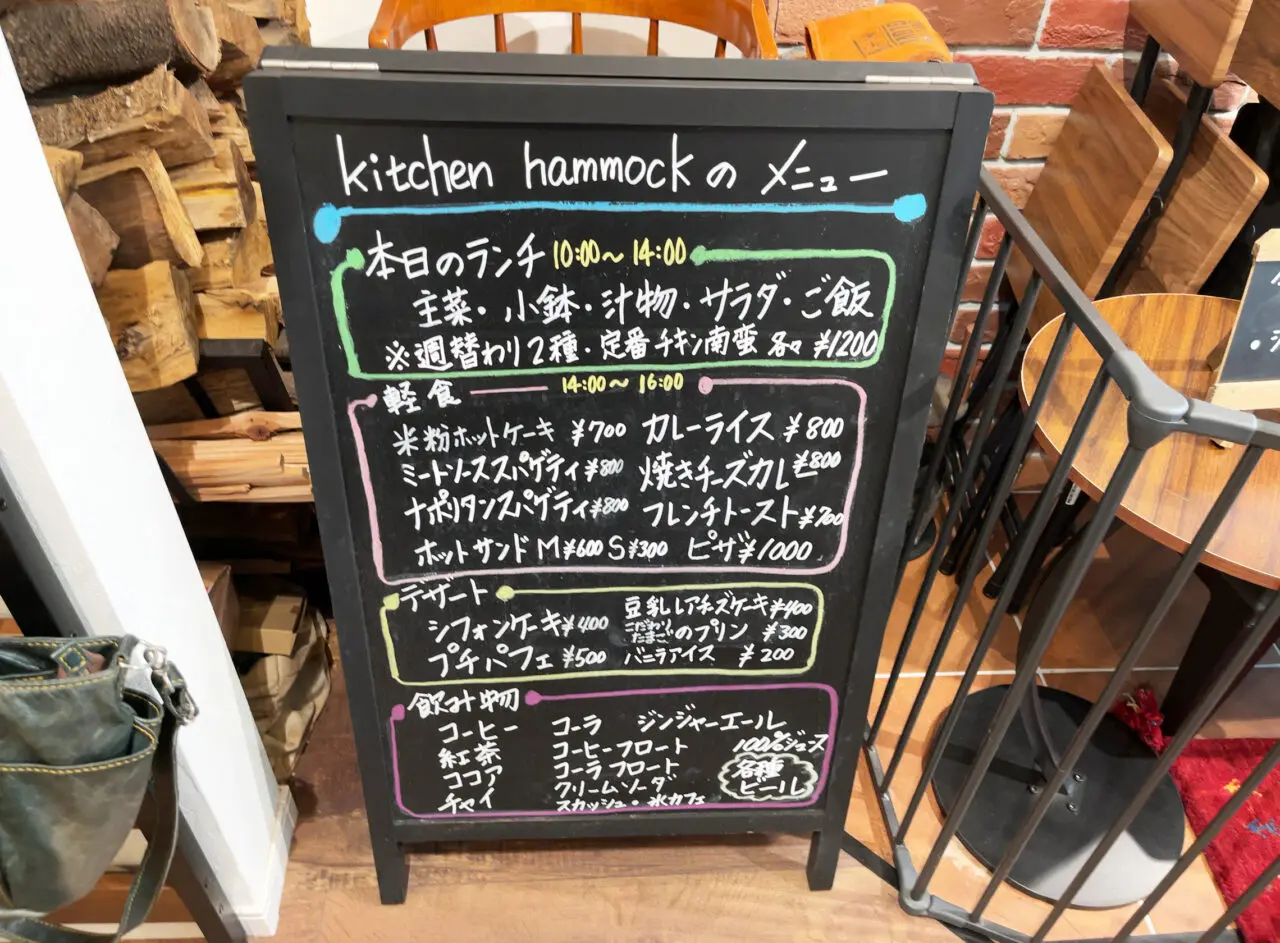 kitchen hammockの メニュー
本日のランチ 10:00〜14:00
主菜・小鉢・汁物・サラダ・ご飯
※週替わり2種・定番チキン南蛮 各々 ¥1200
軽食 14:00〜16:00
米粉ホットケーキ ¥700 カレーライス ¥800
ミートソーススパゲティ ¥800 焼きチーズカレー ¥800
ナポリタンスパゲティ ¥800 フレンチトースト ¥700
ホットサンド M ¥600 S ¥300 ピザ ¥1000
デザート
シフォンケーキ ¥400 豆乳レアチーズケーキ ¥400
プチパフェ ¥500 こだわりたまごのプリン ¥300
バニラアイス ¥200
飲み物
コーヒー コーラ ジンジャーエール
紅茶 コーヒーフロート 100%ジュース
ココア コーラフロート 各種
チャイ クリームソーダ ビール
スカッシュ・氷カフェ